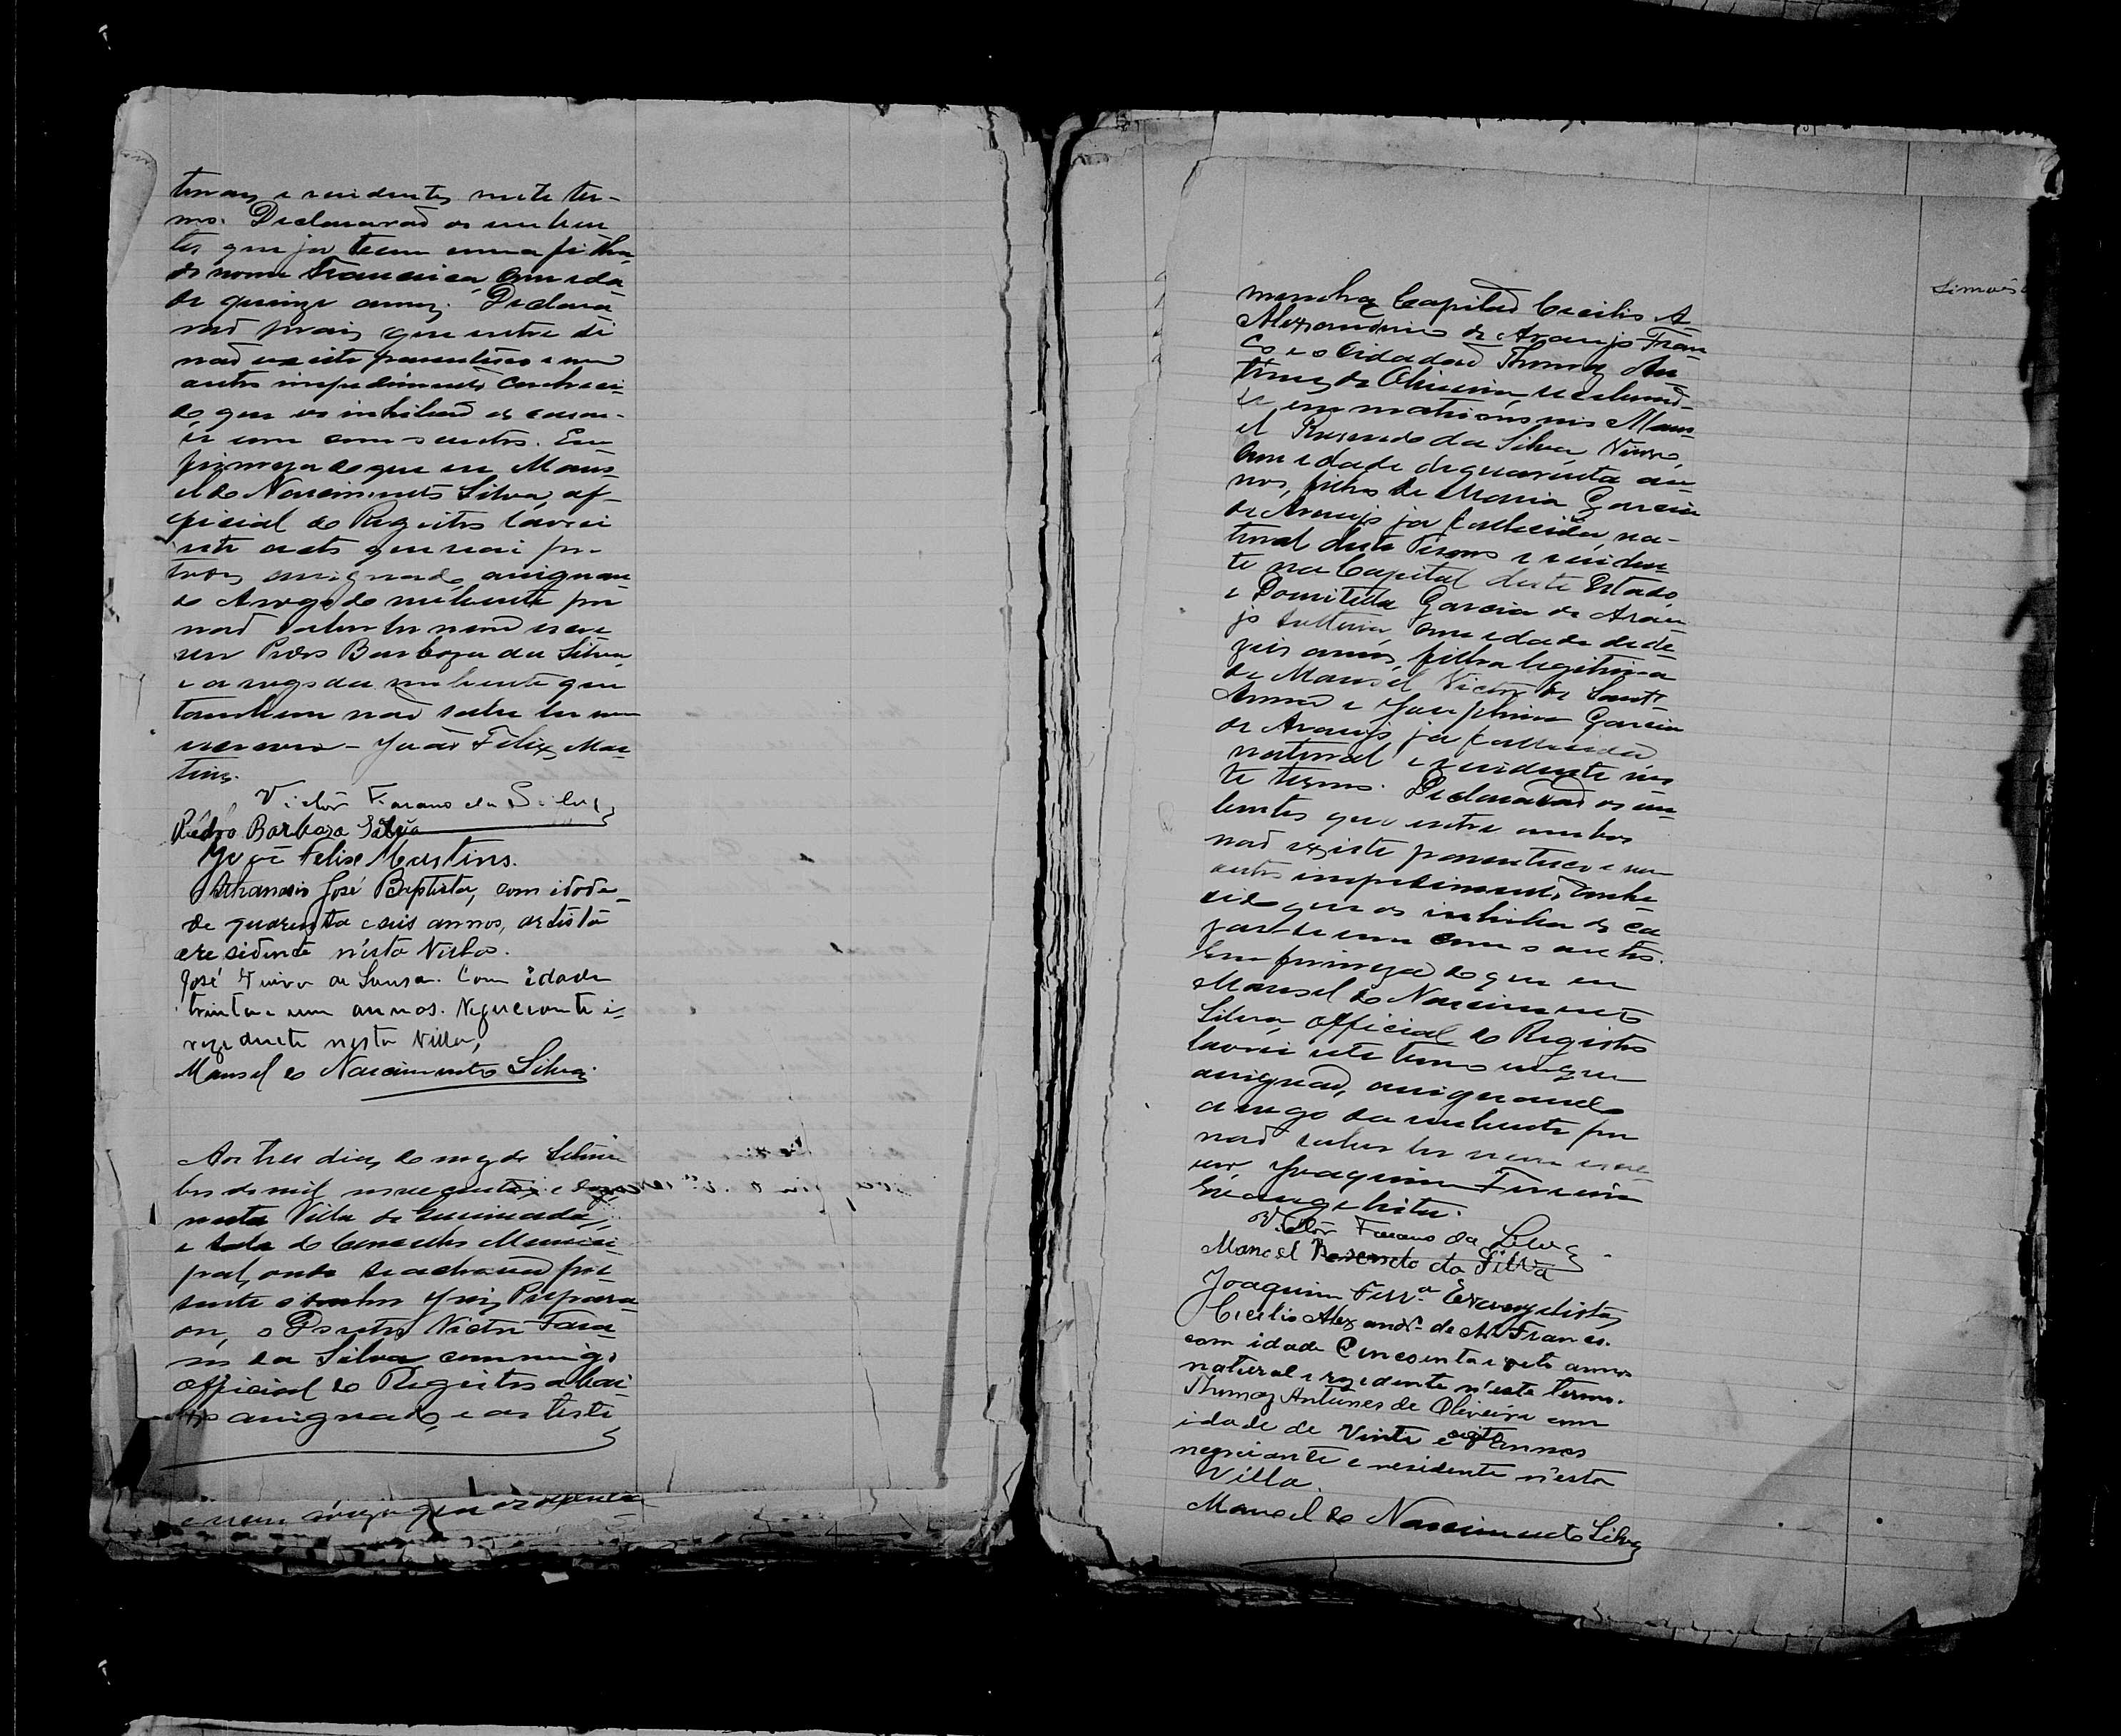 turaes e residentes neste ter-
mo. Declararaõ os nuben
tes que ja teem uma filha
de nome Francisca, com ida
de quinze annos. Declara
raõ mais que entre si
naõ existe parentesco e nem
outro impedimento conheci-
do que os inhibaõ de casar-
se um com o outro. Em
firmeza do que eu Mano-
el do Nascimento Silva, of-
ficial do Registro lavrei
este acto que vai por
todos assignado, assignan
do a rogo do nubente por
naõ saber ler nem escre
ver Pedro Barboza da Silva,
e a rogo da nubente que
tambem naõ sabe ler nem
escrever - João Felix Mar
tins.
Victor Farano da Silva
Pedro Barboza Silva
João Felix Martins.
Athanasio José Baptista, com idade
de quarenta e seis annos, artista
e residente n'esta Villa.
José de Sousa. Com idade
trinta e um annos. Negociante e
rezidente nesta Villa,
Manoel do Nascimento Silva.
Aos tres dias do mez de Setem
bro de mil novecentos e doze
nesta Villa de Queimadas,
e Sala do Conselho Munici
pal, onde se achava pre
sente o Juiz Prepara
dor, o Doutor Victor Fara
no da Silva commigo
official do Registro abai
xo assignado, e as teste
e nem
Simões
munhas Capitaõ Cecilio A
Alexandrino de Araujo Fran
co e o Cidadaõ Thomaz An
tunes de Oliveira, receberaõ-
se em matrimonio Mano
el Rozendo da Silva, Viuvo,
com idade de quarenta an
nos, filho de Maria Garcia
de Araujo ja fallecida, na-
tural deste Termo e residen
te na Capital deste Estado,
e Domitilla Garcia de Arau
jo solteira, com idade de de
zeis annos, filha legitima
de Manoel Victor de Sant
Anna e Josephina Garcia
de Araujo ja fallecida
natural e residente nes
te termo. Declararaõ os nu
bentes que entre ambos
naõ existe parentesco e nem
outro impedimento conhe
cido que os inhiba de ca
zar-se um com o outro.
Em firmeza do que eu
Manoel do Nascimento
Silva, official do Registro
lavrei este termo em que
assignaõ, assignando
a rogo da nubente por
naõ saber ler nem escre
ver, Joaquim Ferreira
Evangelista.
Victor Farano da Silva
Manoel Rosendo da Silva
Joaquim Ferrª Evangelista
Cicilio Alexandrº de Arº Franco.
com idade Cincoenta e oito annos
natural e rezidente n'este termo.
Thomaz Antunes de Oliveira com
idade de Vinte e oito annos
negociante e residente n'esta
Villa.
Manoel do Nascimento Silva